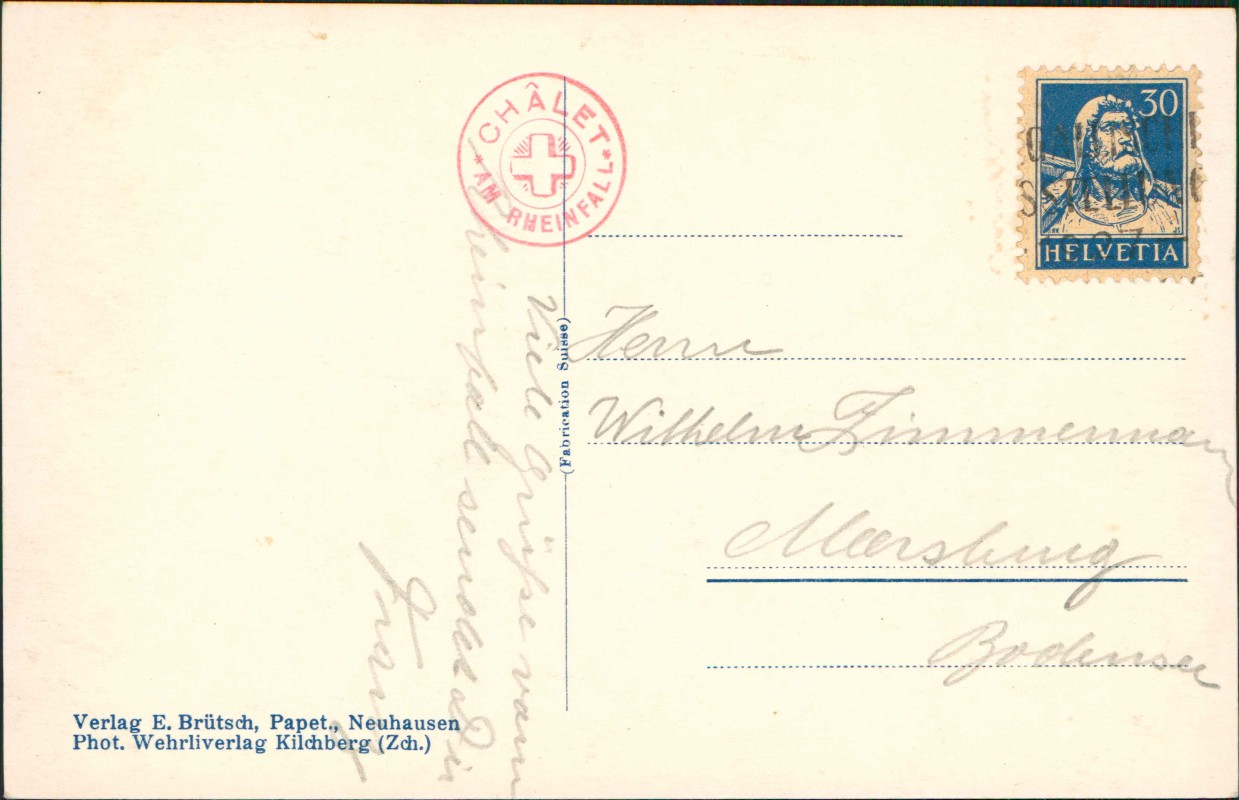 CHÂLET
* AM RHEINFALL *
30
HELVETIA
Viele Grüsse vom
Rheinfall sendet dir
Franz
(Fabrication Suisse)
Herrn
Wilhelm Zimmermann
Meersburg
Bodensee
Verlag E. Brütsch, Papet., Neuhausen
Phot. Wehrliverlag Kilchberg (Zch.)